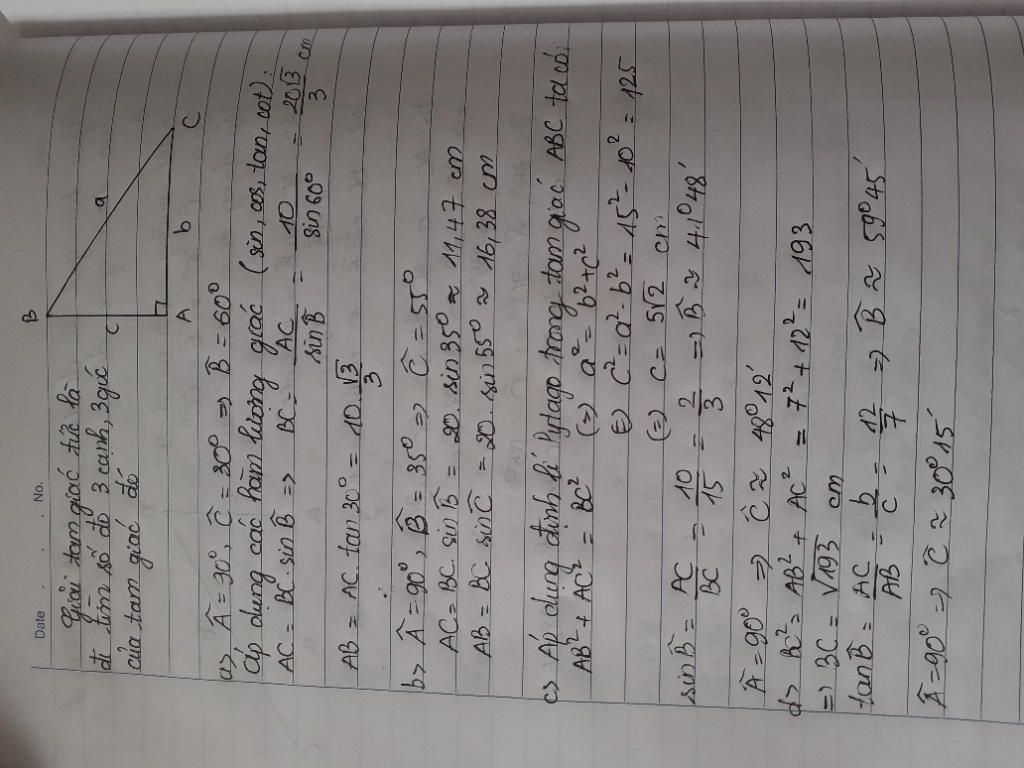 Date . . . No.
Giải tam giác tức là
đi tìm số đo 3 cạnh, 3 góc
của tam giác đó
B
a
c
b
A
C
a> Â = 90°, Ĉ = 30° => B̂ = 60°
Áp dụng các hàm lượng giác (sin, cos, tan, cot):
AC = BC. sin B̂ => BC = AC/sin B̂ = 10/sin 60° = 20√3/3 cm
AB = AC. tan 30° = 10 √3/3
b> Â = 90°, B̂ = 35° => Ĉ = 55°
AC = BC. sin B̂ = 20. sin 35° ≈ 11,47 cm
AB = BC. sin Ĉ = 20. sin 55° ≈ 16,38 cm
c> Áp dụng định lí Pytago trong tam giác ABC ta có:
AB² + AC² = BC² (=) a² = b² + c²
(=) c² = a² - b² = 15² - 10² = 125
(=) c = 5√2 cm
sin B̂ = AC/BC = 10/15 = 2/3 => B̂ ≈ 41°48'
Â = 90° => Ĉ ≈ 48°12'
d> BC² = AB² + AC² = 7² + 12² = 193
=> BC = √193 cm
tan B̂ = AC/AB = b/c = 12/7 => B̂ ≈ 59°45'
Â = 90° => Ĉ ≈ 30°15'